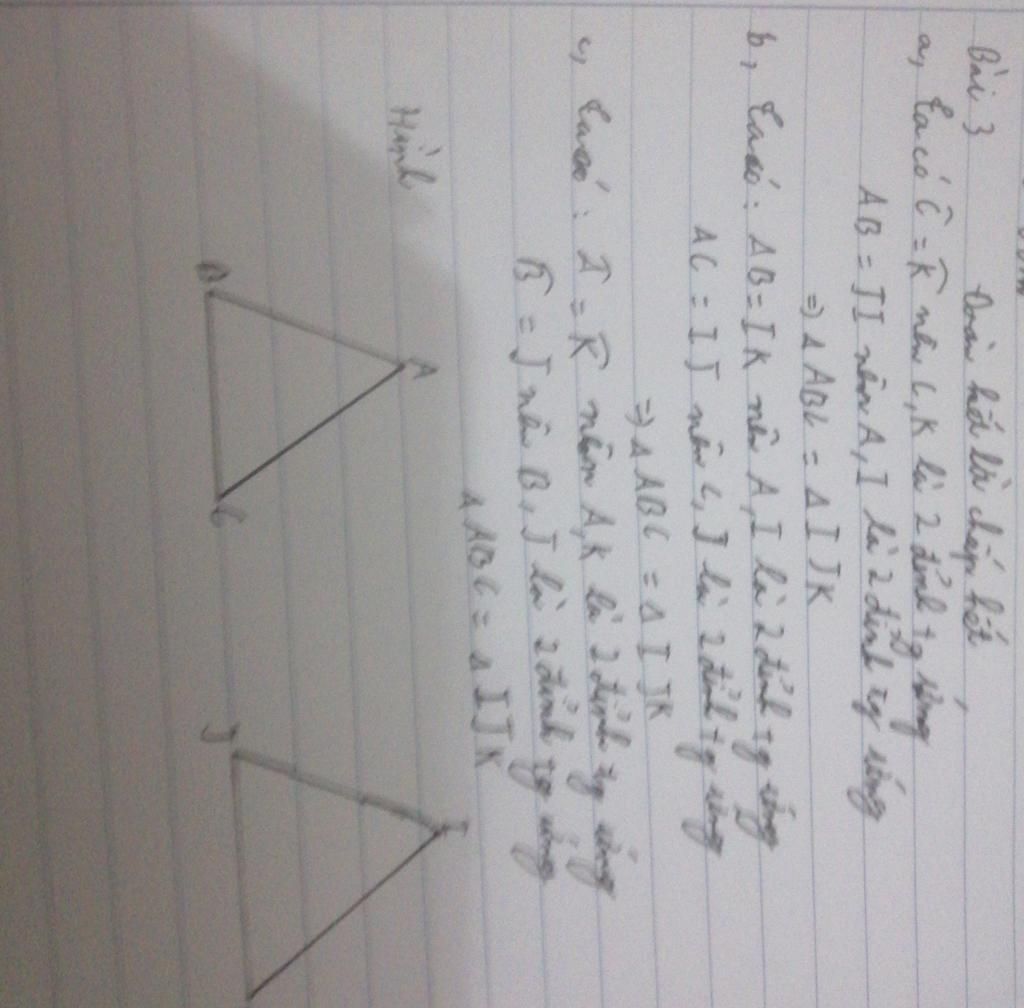 Bài 3
a, Ta có Ĉ = K̂ nên C, K là 2 đỉnh tg ứng
AB = JI nên A, I là 2 đỉnh tg ứng
=> Δ ABC = Δ IJK
b, Ta có: AB = IK nên A, I là 2 đỉnh tg ứng
AC = IJ nên C, J là 2 đỉnh tg ứng
=> Δ ABC = Δ IJK
c, Ta có: Â = K̂ nên A, K là 2 đỉnh tg ứng
B̂ = Ĵ nên B, J là 2 đỉnh tg ứng
Δ ABC = Δ IJK
Hình
A
I
B
C
J